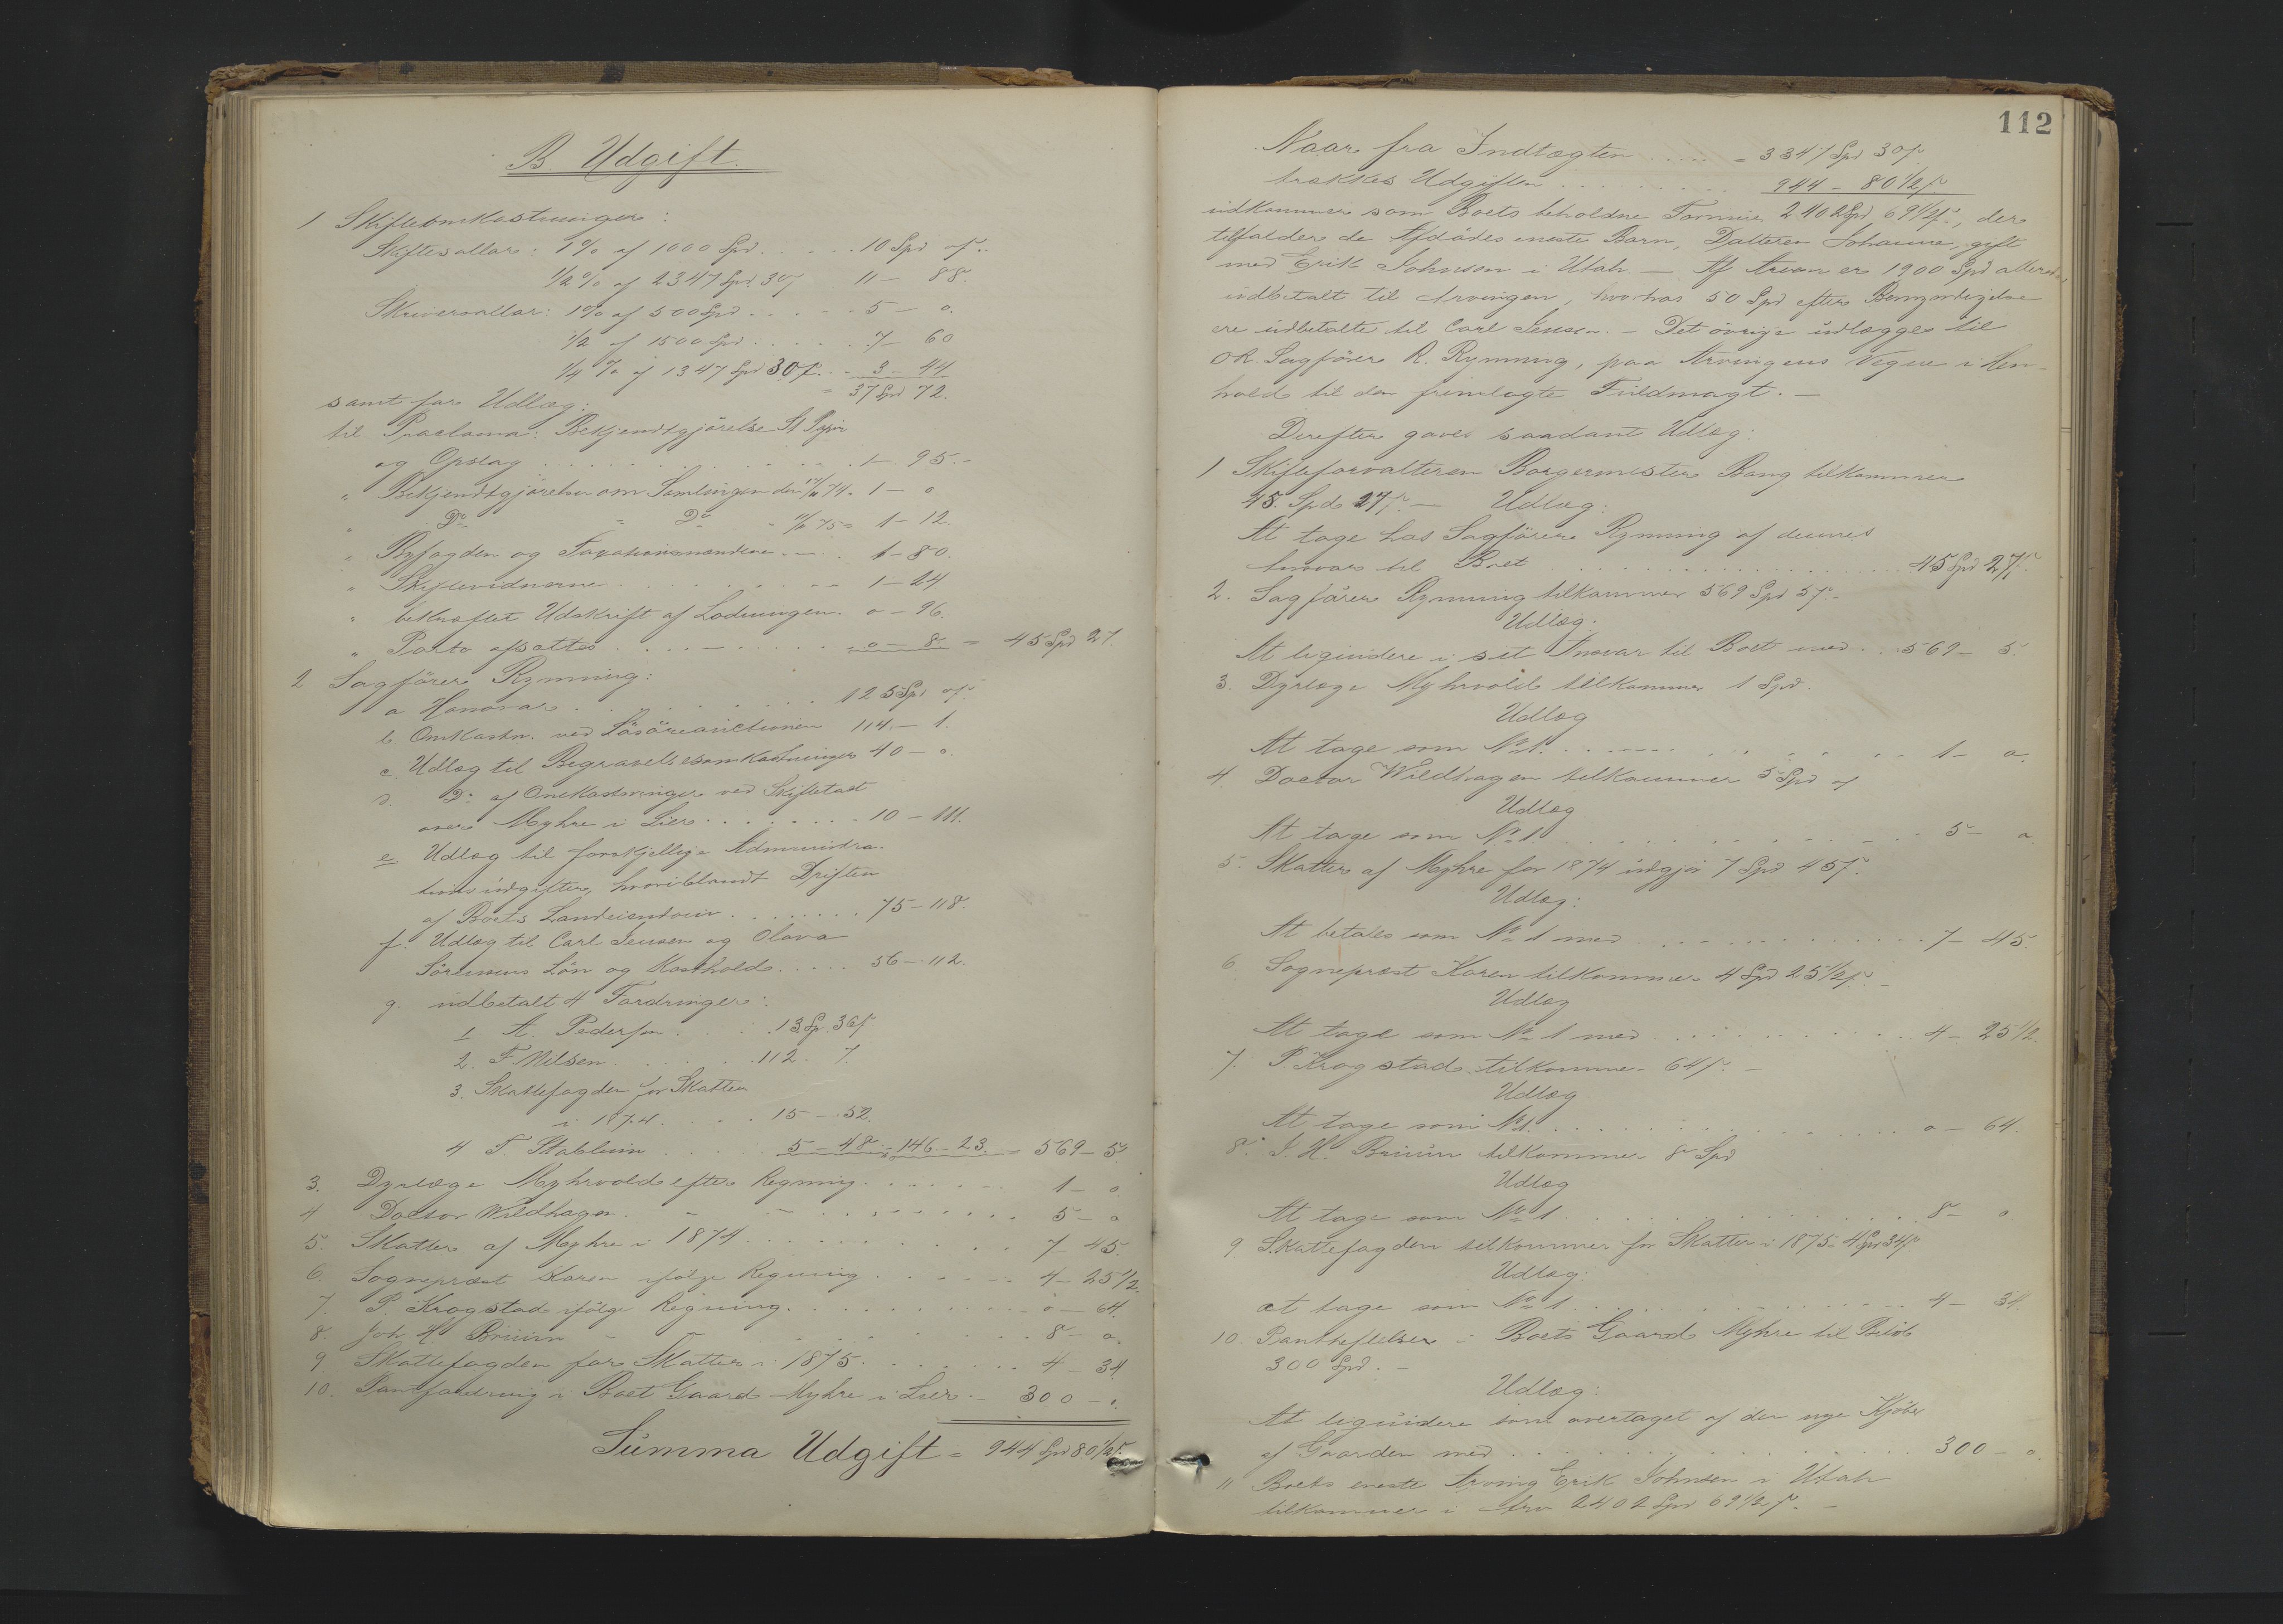 B. Udgift.
1 Skifteomkostninger:
Skiftesallar: 1% af 1000 Spd . . . . . 10 Spd oſ.
1/2% af 2347 Spd. 30ſ 11 – 88.
Skriversallar: 1% af 500 Spd . . . . . 5 – o.
1/2 af 1500 Spd . . . . . 7 – 60
1/4 % af 1347 Spd 30ſ. . . 3 – 44
= 37 Spd 72.
samt for Udlæg:
til Proclama: Bekjendtgjörelse
og Opslag . . . . . 1 – 95. –
" Bekjendtgjörelse om Samlingen den 74. 1 – o
" Do " Do " 75 = 1 – 12.
" Byfogden og Taxationsmændene . – . 1 – 80.
" Skiftevidnerne . . . . . 1 – 24
" bekræftet Udskrift af Lodningen. o – 96.
" Porto afsattes . . . . . o – 8 = 45 Spd 27.
2 Sagförer Rynning:
a Honorar . . . . . 125 Spd oſ.
b. Omkostn. ved Lösöreauctionen 114 – 1.
c. Udlæg til Begravelsesomkostninger 40 – o.
d. Do af Omkostninger ved Skiftetaxt
over Myhre i Lier . . . . . 10 – 111.
e Udlæg til forskjellige Administra-
tionsudgifter, hvoriblandt Driften
af Boets Landeiendom . . . . . 75 – 118.
f. Udlæg til Carl Jensen og Olava
Sörensens Lön og Kosthold . . . . . 56 – 112.
g. udbetalt 4 Fordringer:
1 A. Pedersen . . . . . 13 Sp. 36ſ
2. F. Nilsen . . . . . 112 – 7.
3. Skattefogden for Skatten
i 1874 . . . . . 15 – 52.
4 T. Stablum . . . . . 5 – 48 = 146 – 23. = 569 – 5
3. Dyrlæge Myhrvold efter Regning . . . . . 1 – o
4 Doctor Wildhagen. – – . . . . . 5 – o
5. Skatter af Myhre i 1874 . . . . . 7 – 45.
6. Sognepræst Koren ifölge Regning . . . . . 4 – 25 1/2
7. P. Krogstad ifölge Regning. . . . . . o – 64.
8. Joh. H Bruun – – . . . . . 8 – o.
9 Skattefogden for Skatter i 1875. . . . . . 4 – 34
10. Pantfordring i Boet Gaard Myhre i Lier. – 300 – o.
Summa Udgift = 944 Spd 80 1/2 ſ.
112
Naar fra Indtægten . . . . . = 3347 Spd 30ſ.
trækkes Udgiften . . . . . 944 – 80 1/2 ſ.
udkommer som Boets beholdne Formue 2402 Spd 69 1/2 ſ., der
tilfalder de Afdödes eneste Barn, Datteren Johanne, gift
med Erik Johnsen i Utah – Af Arven er 1900 Spd allerede,
udbetalt til Arvingen, hvorhos 50 Spd efter Bemyndigelse
ere udbetalte til Carl Jensen. – Det övrige udlægges til
OR. Sagförer R. Rynning, paa Arvingens Vegne i Hen-
hold til den fremlagte Fuldmagt. –
Derefter gaves saadant Udlæg:
1 Skifteforvalteren Borgermester Bang tilkommer
45. Spd 27ſ. – Udlæg:
At tage hos Sagförer Rynning af dennes
Ansvar til Boet . . . . . 45 Spd 27ſ.
2. Sagförer Rynning tilkommer 569 Spd 5ſ. –
Udlæg.
At liquidere i sit Ansvar til Boet med . . 569 – 5.
3. Dyrlæge Myhrvold tilkommer 1 Spd.
Udlæg
At tage som No 1. . . . . . 1 – o.
4. Doctor Wildhagen tilkommer 5 Spd oſ
Udlæg
At tage som No 1. . . . . . 5 – o.
5. Skatter af Myhre for 1874 udgjör 7 Spd 45ſ.
Udlæg:
At betales som No 1 med . . . . . 7 – 45.
6 Sognepræst Koren tilkommer 4 Spd 25 1/2 ſ. –
Udlæg
At tage som No 1 med . . . . . 4 – 25 1/2.
7. P Krogstad tilkommer 64ſ. –
Udlæg
At tage som No 1. . . . . . o – 64.
8. J. H. Bruun tilkommer 8 Spd
Udlæg
At tage som No 1 . . . . . 8 – o
9. Skattefogden tilkommer for Skatter i 1875 = 4 Spd 34ſ.
Udlæg.
at tage som No 1. . . . . . 4 – 34.
10. Pantheftelser i Boets Gaard Myhre til Belöb
300 Spd. –
Udlæg:
At liquidere som overtaget af den nye Kjöber
af Gaarden med . . . . . 300 – o.
11 Boets eneste Arving Erik Johnsen i Utah
tilkommer i Arv 2402 Spd 69 1/2 ſ. –